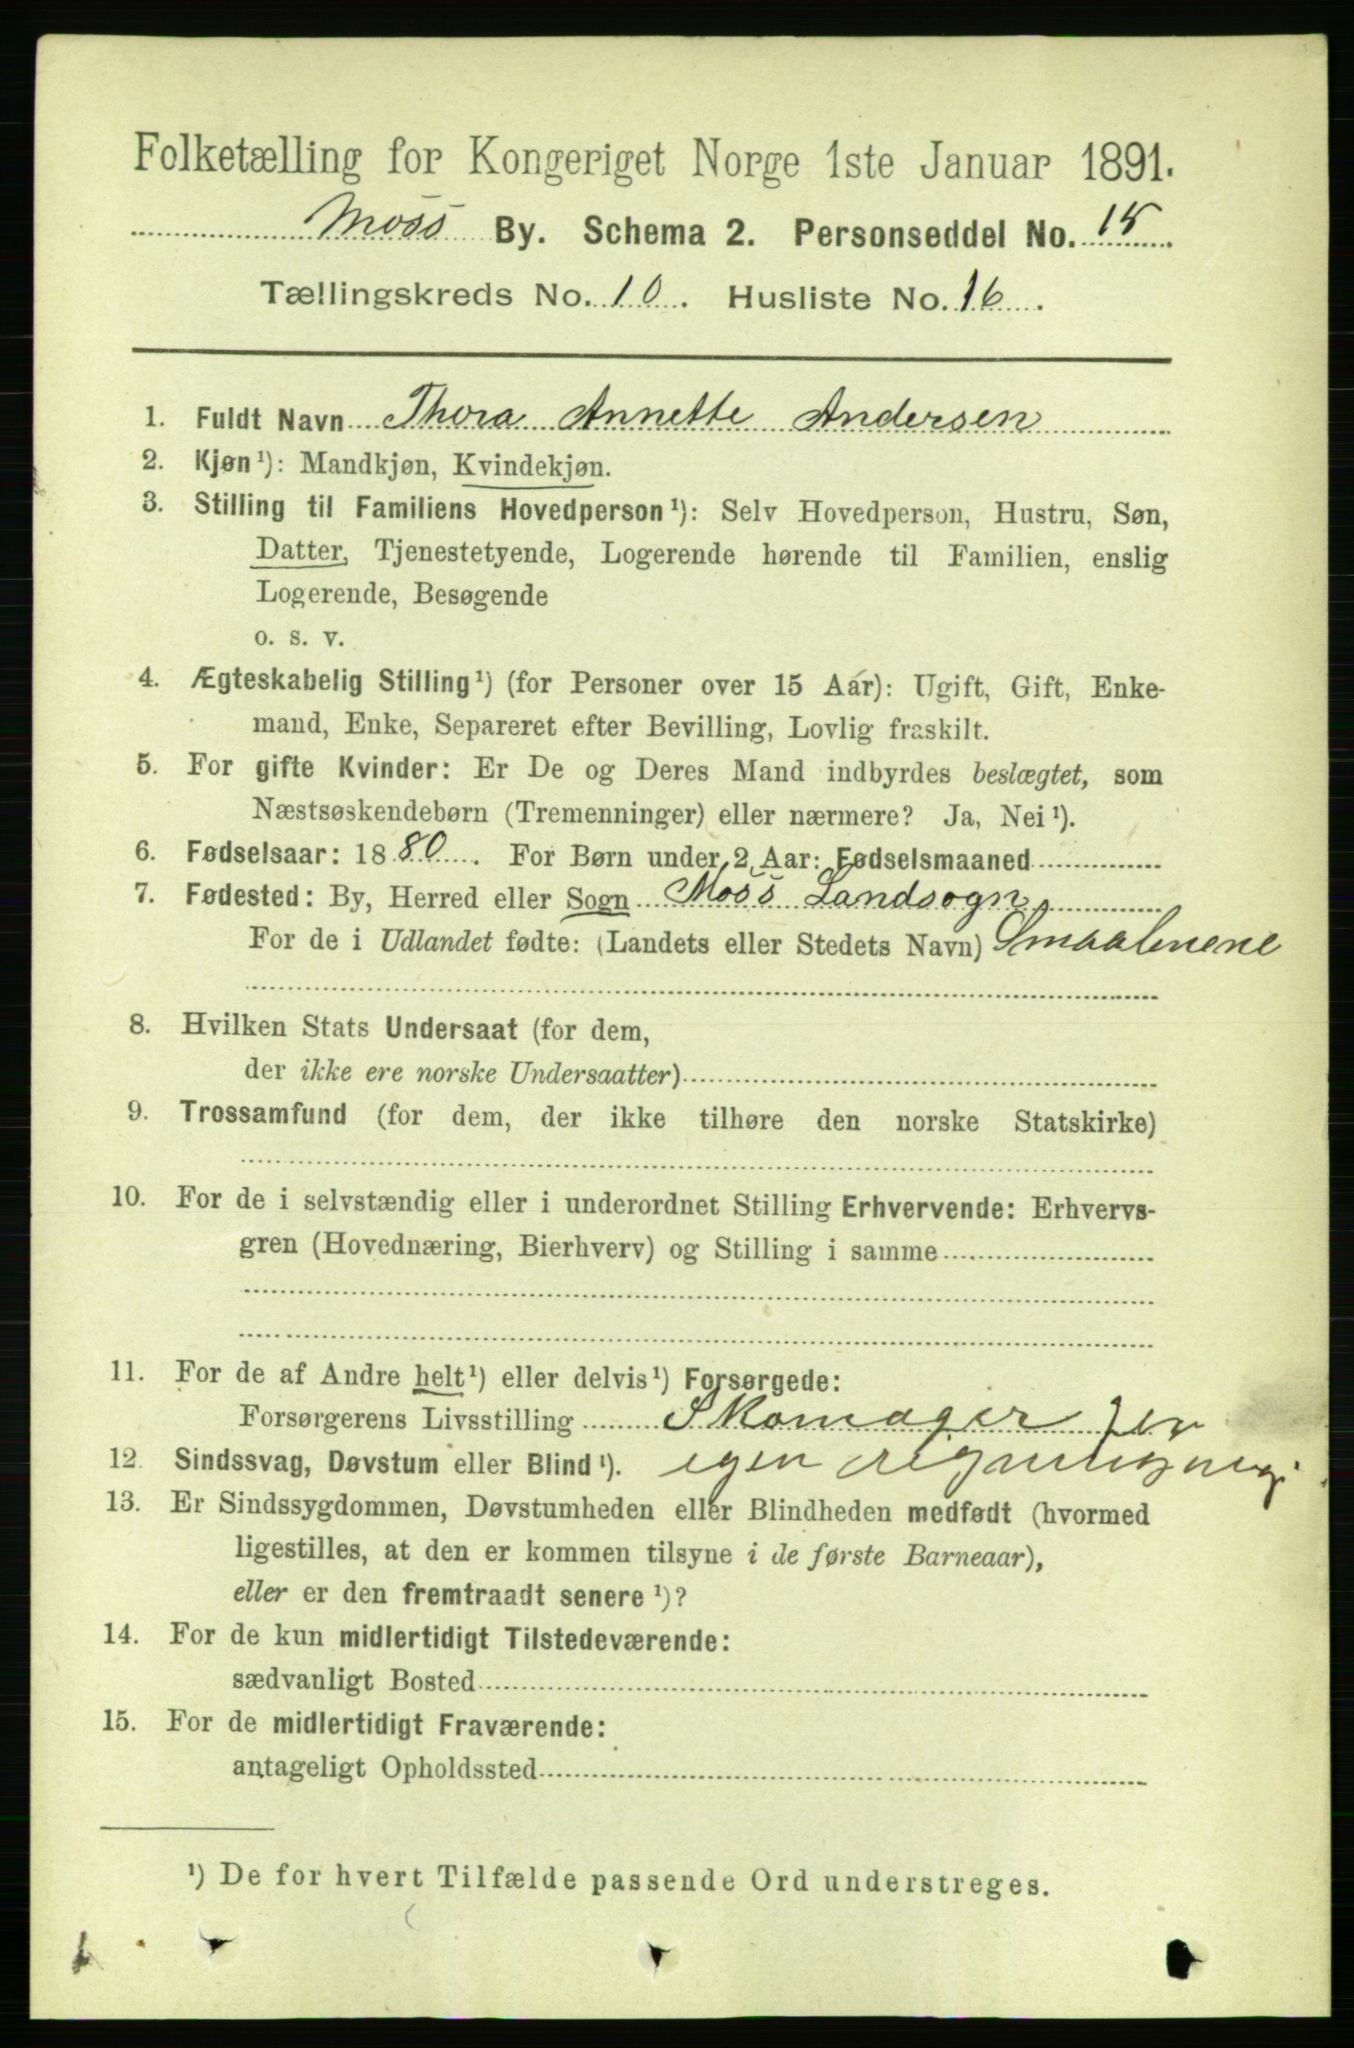 Folketælling for Kongeriget Norge 1ste Januar 1891.
Moss By. Schema 2. Personseddel No. 15
Tællingskreds No. 10. Husliste No. 16.
1. Fuldt Navn Thora Annette Andersen
2. Kjøn¹): Mandkjøn, Kvindekjøn.
3. Stilling til Familiens Hovedperson¹): Selv Hovedperson, Hustru, Søn,
Datter, Tjenestetyende, Logerende hørende til Familien, enslig
Logerende, Besøgende
o. s. v.
4. Ægteskabelig Stilling¹) (for Personer over 15 Aar): Ugift, Gift, Enke-
mand, Enke, Separeret efter Bevilling, Lovlig fraskilt.
5. For gifte Kvinder: Er De og Deres Mand indbyrdes beslægtet, som
Næstsøskendebørn (Tremenninger) eller nærmere? Ja, Nei¹).
6. Fødselsaar: 1880. For Børn under 2 Aar: Fødselsmaaned
7. Fødested: By, Herred eller Sogn Moss Landsogn
For de i Udlandet fødte: (Landets eller Stedets Navn) Smaalenene
8. Hvilken Stats Undersaat (for dem,
der ikke ere norske Undersaatter)
9. Trossamfund (for dem, der ikke tilhøre den norske Statskirke)
10. For de i selvstændig eller i underordnet Stilling Erhvervende: Erhvervs-
gren (Hovednæring, Bierhverv) og Stilling i samme
11. For de af Andre helt¹) eller delvis¹) Forsørgede:
Forsørgerens Livsstilling Skomager for
12. Sindssvag, Døvstum eller Blind¹). egen
13. Er Sindssygdommen, Døvstumheden eller Blindheden medfødt (hvormed
ligestilles, at den er kommen tilsyne i de første Barneaar),
eller er den fremtraadt senere¹)?
14. For de kun midlertidigt Tilstedeværende:
sædvanligt Bosted
15. For de midlertidigt Fraværende:
antageligt Opholdssted
¹) De for hvert Tilfælde passende Ord understreges.